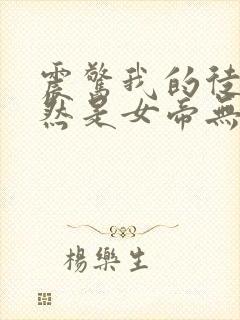 震驚我的徒
然是女帝無
楊樂生